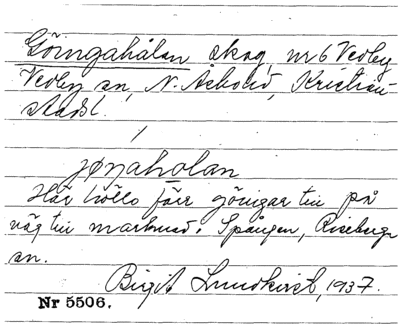 Göingahålan skog, nr 6 Vedby
Vedby sn, N. Åsbo hd, Kristian-
stads l.
jøŋaholan
Här höllo förr göingar till på
väg till marknad i Spången, Riseberga
sn.
Birgit Lundkvist, 1937.
Nr 5506.